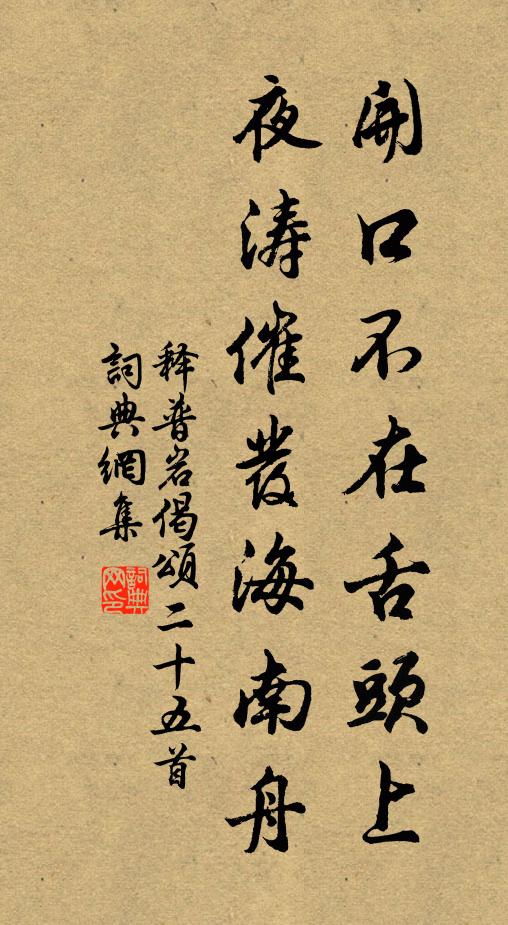 開口不在舌頭上
夜濤催發海南舟
释普岩偈頌二十五首
詞典網集
詞典网印